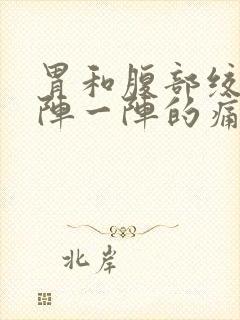 胃和腹部绞
陣一陣的痛
北岸